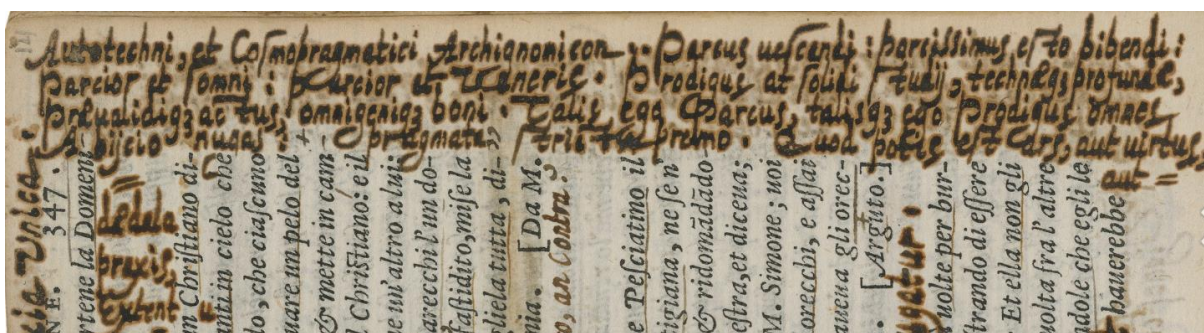 Autotechni, et Cosmopragmatici Archignomicon. Parcus uescendi: parcissimus esto bibendi:
Parcior et somni: parcior et Veneris. Prodigus at solidi studij, technæqꝫ profundæ,
Præualidiqꝫ actus, omnigeniqꝫ boni. Talis ego Parcus, talisqꝫ ego Prodigus omnes
Abijcio nugas: pragmata stricta premo. Quod potis est Ars, aut uirtus,
aut =
dędala
praxis,
Extent
Vnica.
NE. 347.
rtene la Domeni-
Christiano di-
in cielo che
do, che ciascuno
uare un pelo del
& mette in can-
l Christiano: e il
se un'altro a lui
arecchi l'un do-
fastidito, mise la
gliela tutta, di-
nia. [Da M.
o, an Contra?
e Pesciatino il
igiana, ne se n'
& ridomãdãdo
estra, et diceua;
M. Simone; uoi
orecchi, e assai
aueua gli orec-
[Arguto.]
ugatur.
molte per bur-
trando di essere
Et ella non gli
olta fra l'altre
dole che egli le
hauerebbe